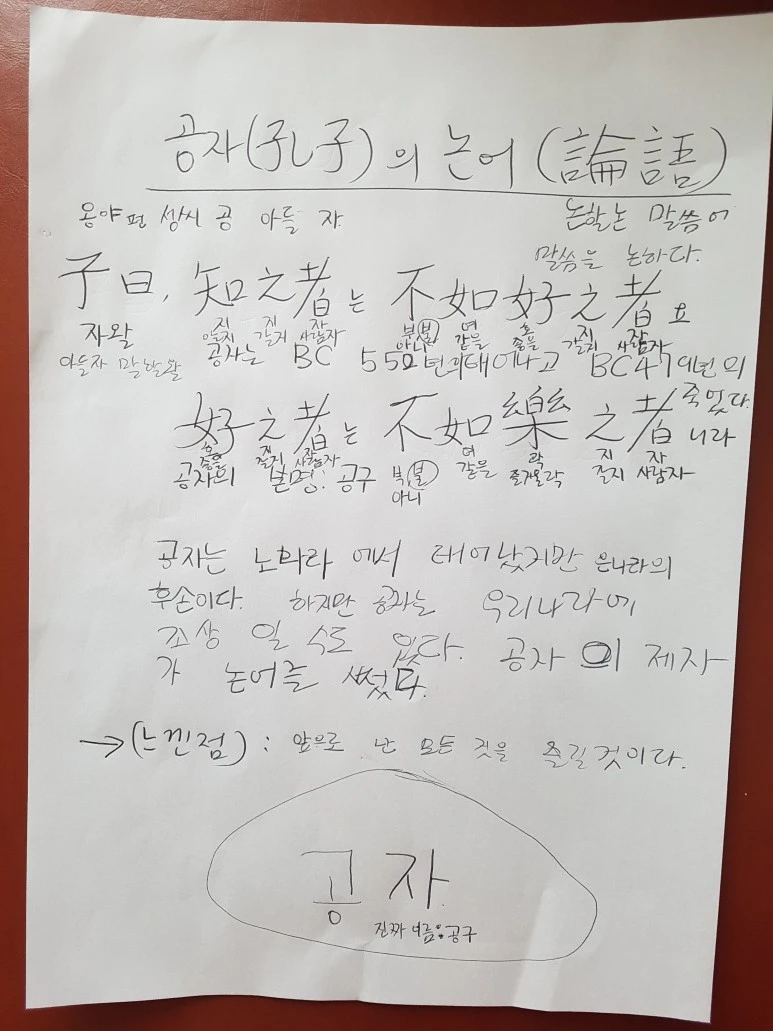 공자(孔子)의 논어(論語)
옹야편 성씨 공 아들 자 논할논 말씀어
말씀을 논하다.
子曰, 知之者는 不如好之者요
자왈 지 지 자 부(불) 여 호 지 자
아들자 말할왈 알지 갈지 사람자 아니 같을 좋을 갈지 사람자
공자는 BC 552년의태어나고 BC479년의
죽었다.
好之者는 不如樂之者니라
호 지 자 부(불) 여 락 지 자
좋을 갈지 사람자 아니 같을 즐거울락 갈지 사람자
공자의 본명: 공구
공자는 노나라에서 태어났지만 은나라의
후손이다. 하지만 공자는 우리나라에
조상 일 수도 있다. 공자의 제자
가 논어를 썼다.
→(느낀점) : 앞으로 난 모든 것을 즐길것이다.
공자
진짜 이름:공구